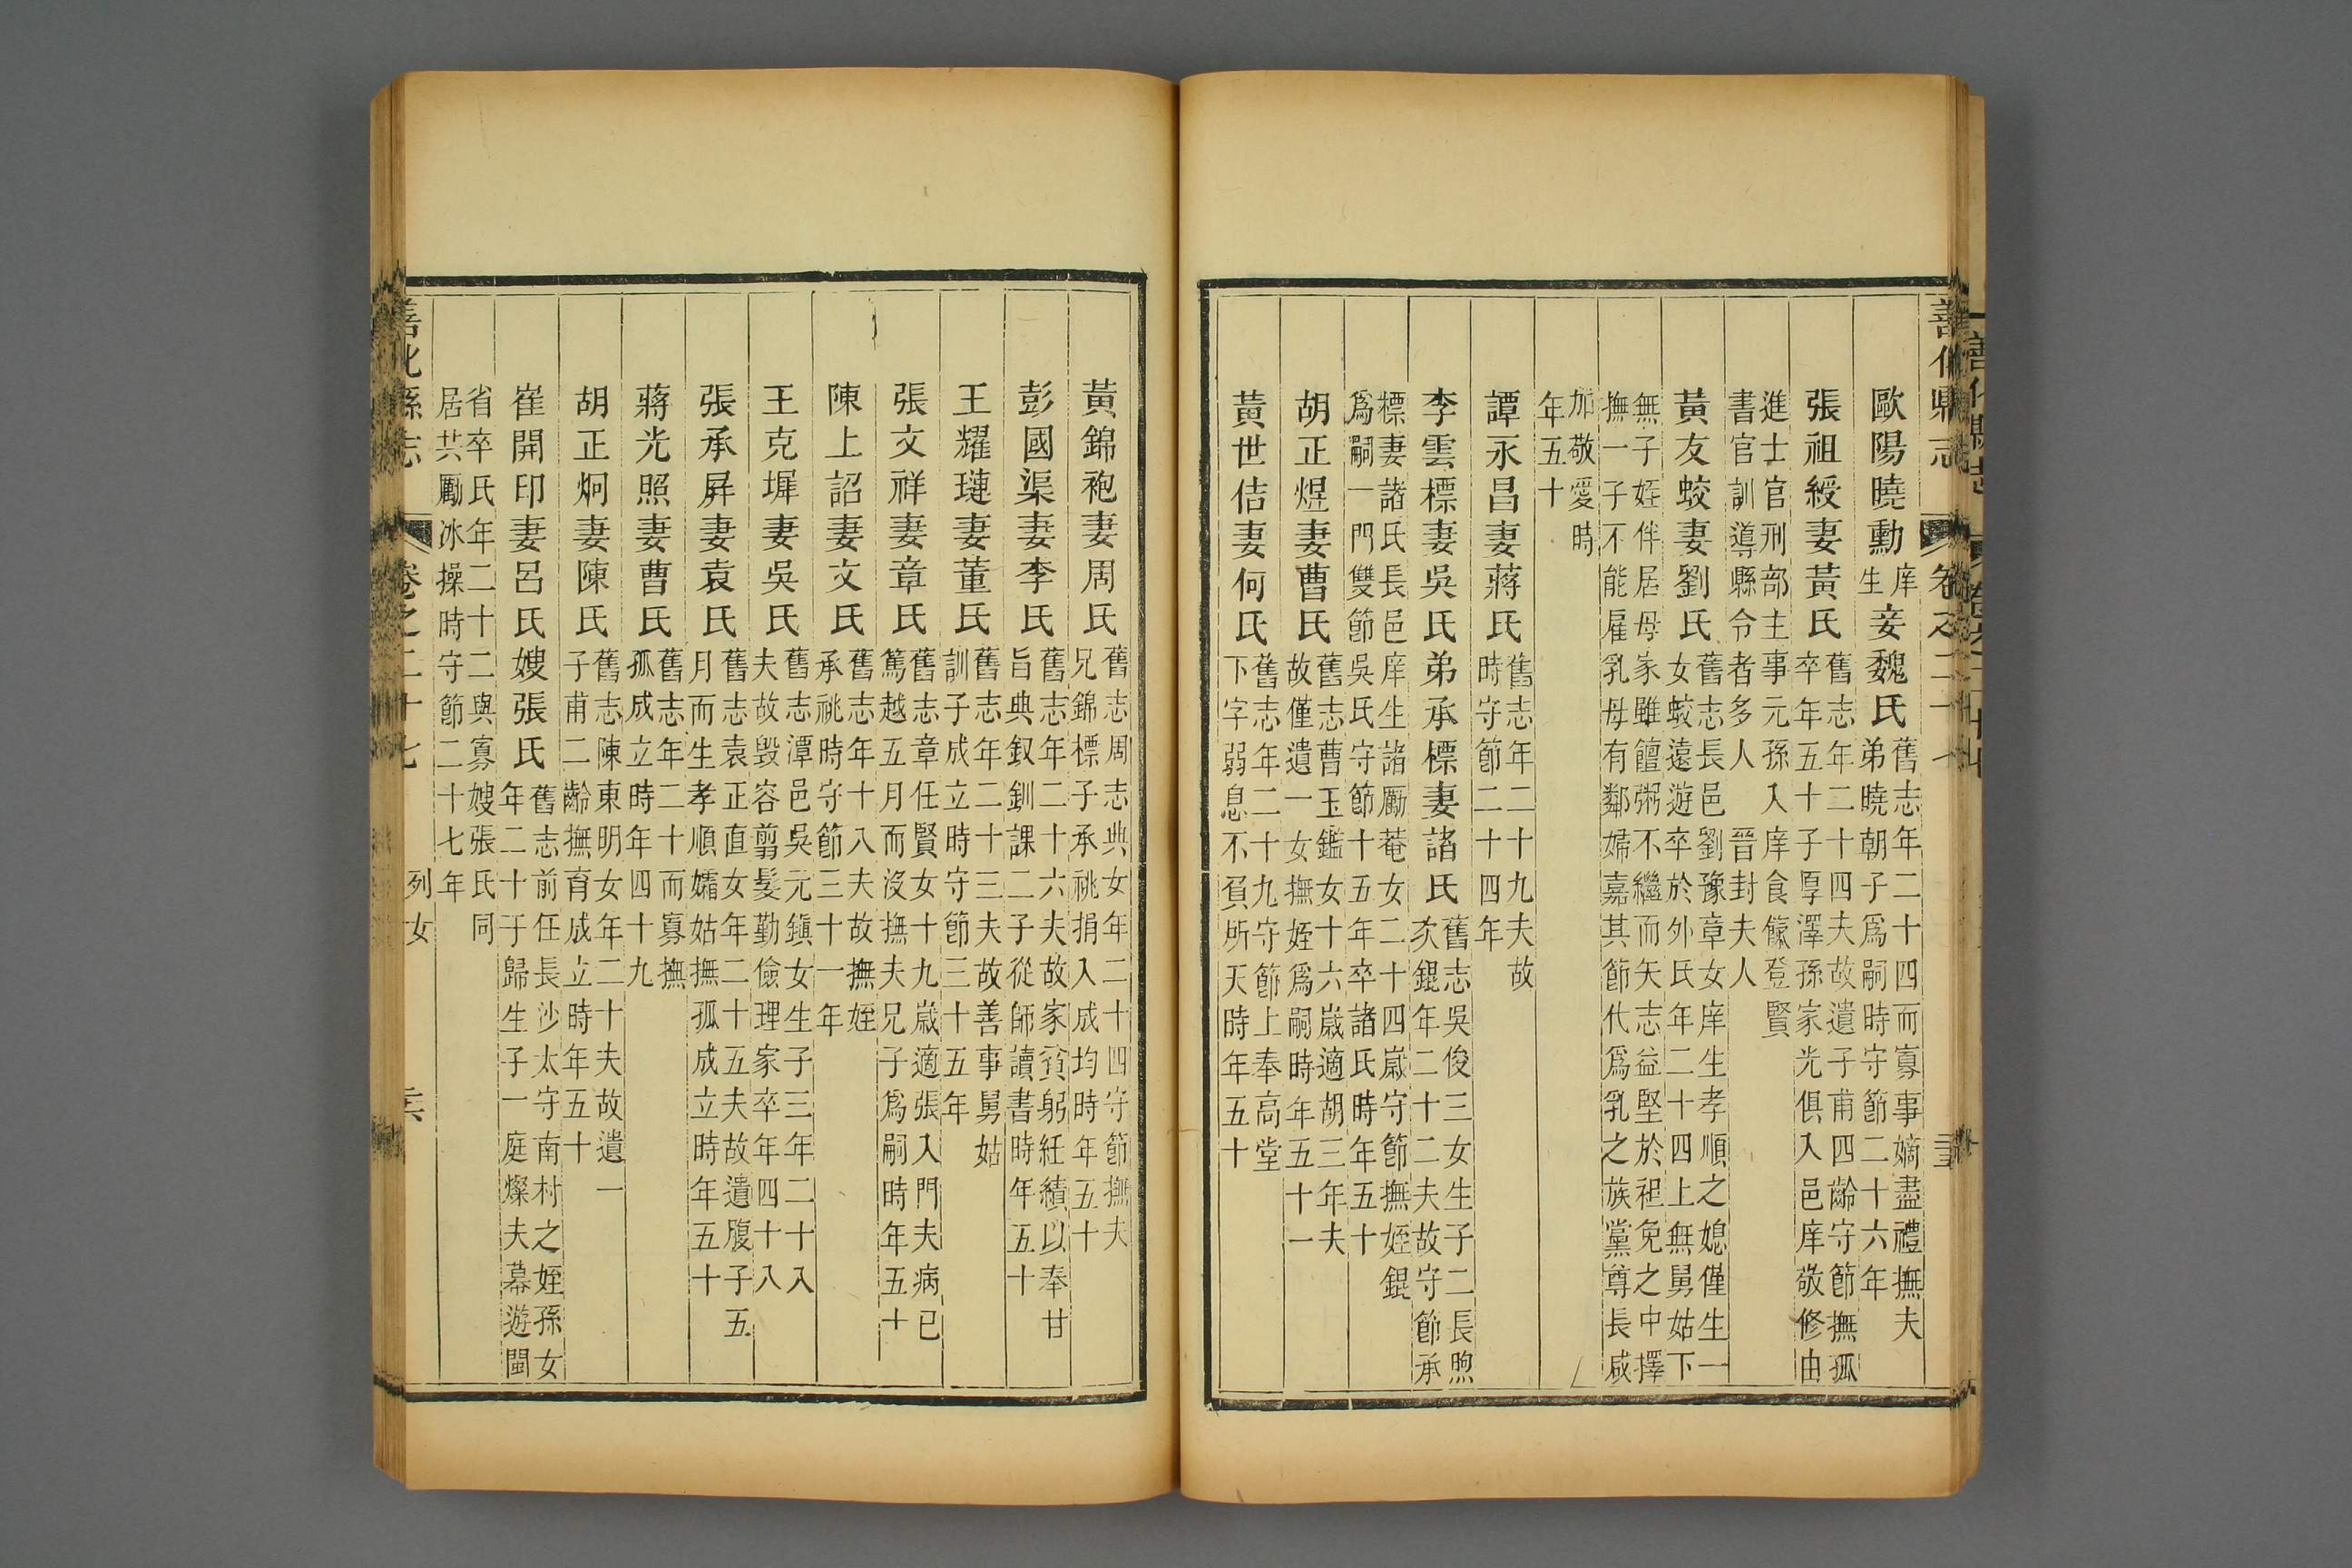 善化縣志 卷之二十七
歐陽曉勳庠生妾魏氏舊志年二十四而寡事嫡盡禮撫夫弟曉朝子爲嗣時守節二十六年
張祖綬妻黃氏舊志年二十四夫故遺子甫四齡守節撫孤卒年五十子厚澤孫家光俱入邑庠敬修由
進士官刑部主事元孫入庠食餼登賢書官訓導縣令者多人晉封夫人
黃友蛟妻劉氏舊志長邑劉豫章女庠生孝順之媳僅生一女蛟遠遊卒於外氏年二十四上無舅姑下
無子姪伴居母家雖饘粥不繼而矢志益堅於袒免之中擇撫一子不能雇乳母有鄰婦嘉其節代爲乳之族黨尊長咸
加敬愛時年五十
譚永昌妻蔣氏舊志年二十九夫故時守節二十四年
李雲標妻吳氏弟承標妻諸氏舊志吳俊三女生子二長煦次錕年二十二夫故守節承
標妻諸氏長邑庠生諸勵菴女二十四歲守節撫姪錕爲嗣一門雙節吳氏守節十五年卒諸氏時年五十
胡正煜妻曹氏舊志曹玉鑑女十六歲適胡三年夫故僅遺一女撫姪爲嗣時年五十一
黃世佶妻何氏舊志年二十九守節上奉高堂下字弱息不負所天時年五十
黃錦袍妻周氏舊志周志典女年二十四守節撫夫兄錦標子承祧捐入成均時年五十
彭國渠妻李氏舊志年二十六夫故家貧躬紝績以奉甘旨典釵釧課二子從師讀書時年五十
王耀璉妻董氏舊志年二十三夫故善事舅姑訓子成立時守節三十五年
張文祥妻章氏舊志章任賢女十九歲適張入門夫病已篤越五月而沒撫夫兄子爲嗣時年五十
陳上詔妻文氏舊志年十八夫故撫姪承祧時守節三十一年
王克墀妻吳氏舊志潭邑吳元鎮女生子三年二十入夫故毀容翦髮勤儉理家卒年四十八
張承屛妻袁氏舊志袁正直女年二十五夫故遺腹子五月而生孝順孀姑撫孤成立時年五十
蔣光照妻曹氏舊志年二十而寡撫孤成立時年四十九
胡正炯妻陳氏舊志陳東明女年二十夫故遺一子甫二齡撫育成立時年五十
崔開印妻呂氏嫂張氏舊志前任長沙太守南村之姪孫女年二十于歸生子一庭燦夫幕遊閩
省卒氏年二十二與寡嫂張氏同居共勵冰操時守節二十七年
善化縣志 卷之二十七 列女